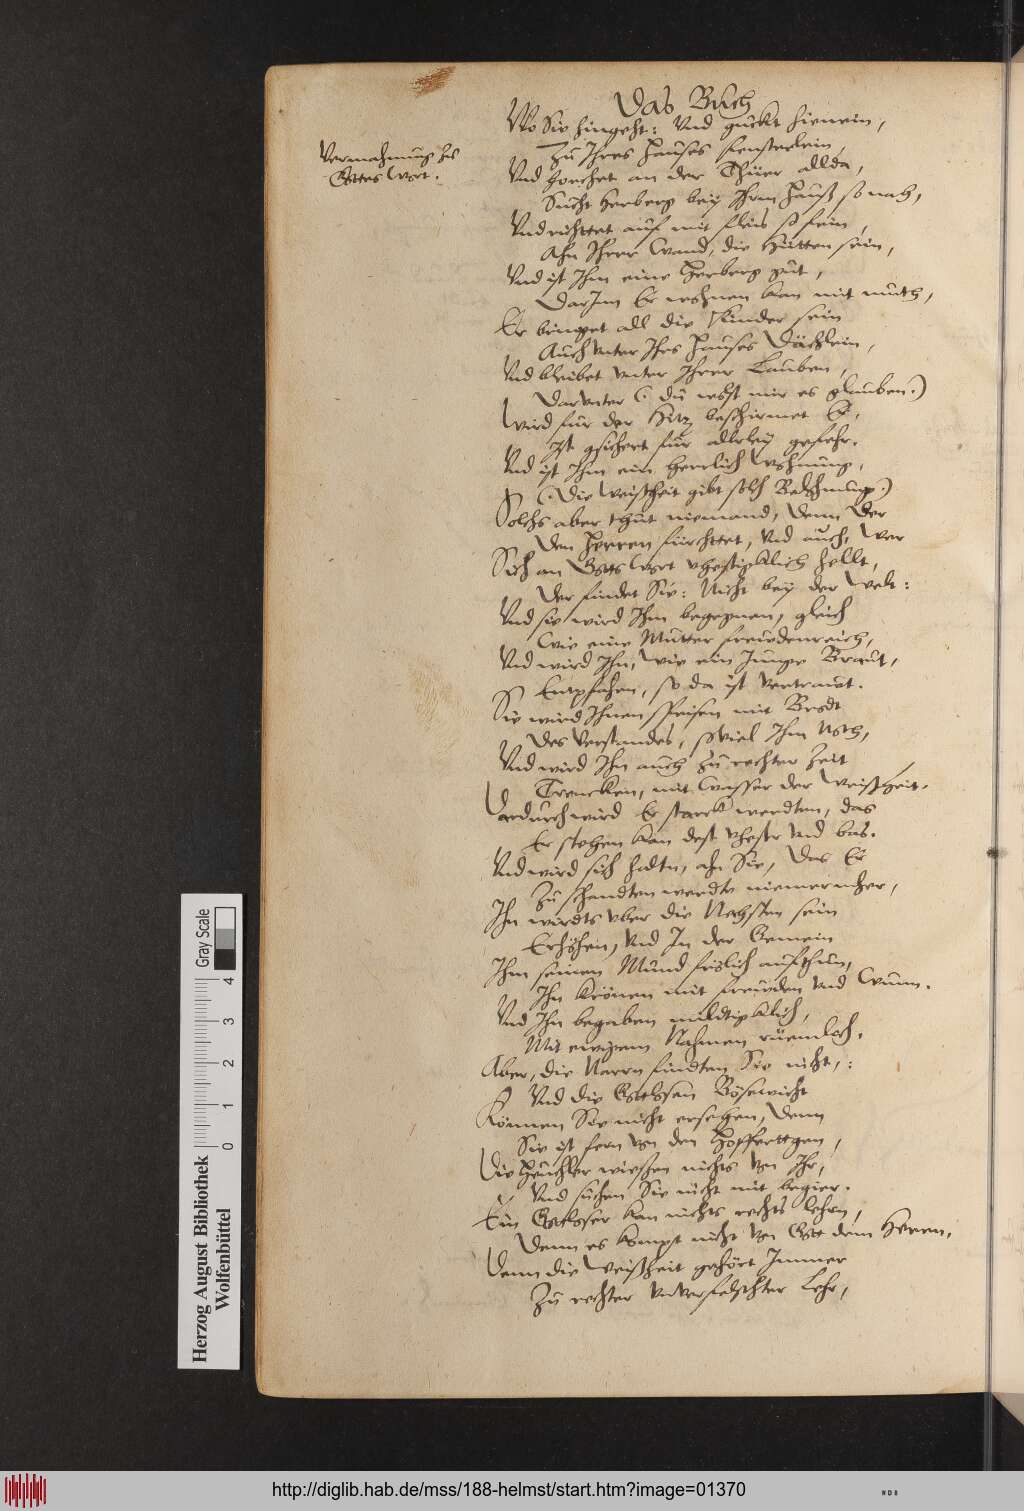 Das Buch
Vermahnung bey
Gottes Wort.
Wo Sie hingeht: Vnd guckt hienein,
Zu Ihres Hauses fensterlein,
Vnd horchet an der Thüer allda,
Sucht Herberg bey Ihrm Hauß so nah,
Vnd richtet auf mit fleis so fein,
Ahn Ihrer Wand, die Hütten sein,
Vnd ist Ihm eine Herberg gut,
Darinn Er wohnen kan mit muth,
Er bringet all die Kinder sein
Auch vnter Ihrs Hauses Dächlein,
Vnd bleibet vnter Ihrer Lauben,
Darvnter (: du wolst mir es glauben:)
Wird für der Hitz beschirmet Er,
Ist gsichert für allerley gefehr.
Vnd ist Ihm ein Herrlich Wohnung,
(: Die Weißheit gibt solch Belohnung:)
Solchs aber thut niemand, denn der
Den Herren fürchtet, Vnd auch, Wer
Sich an Gotts Wort vhestigklich hellt,
Der findet Sie: Nicht bey der Welt:
Vnd sie wird Ihm begegnen, gleich
Wie eine Mutter freudenreich,
Vnd wird Ihn, wie ein Junge Braut,
Entpfahen, so da ist vertrawt.
Sie wird Ihnen speisen mit Brodt
Des Verstandes, so viel Ihm Noth,
Vnd wird Ihn auch zu rechter Zeit
Trencken, mit Wasser der Weißheit.
Dardurch wird Er starck werdten, das
Er stehen kan dest vhester vnd bas.
Vnd wird sich haltn, ahn Sie, Das Er
Zu schandten werdte niemermher,
Ihn wirdts vber die Nechsten sein
Erhöhen, Vnd In der Gemein
Ihm seinen Mund frölich aufthun,
Ihn Krönen mit freuden vnd Wunn.
Vnd Ihn begaben mildtigklich,
Mit ewigem Nahmen rüemlich.
Aber, die Narrn findten Sie nicht,:
Vnd die Gottlosen Bösewicht
Können Sie nicht ersehen, Denn
Sie ist fern von den Hoffertigen,
Die Heuchler wissen nichts von Ihr,
Vnd suchen Sie nicht mit begier.
Ein Gottloser kan nichts rechts lehrn,
Denn es kompt nicht von Gott dem Herrn,
Denn die Weißheit gehört Immer
Zu rechter vnverfelschter Lehr,
Gray Scale
0 1 2 3 4
Herzog August Bibliothek
Wolfenbüttel
http://diglib.hab.de/mss/188-helmst/start.htm?image=01370